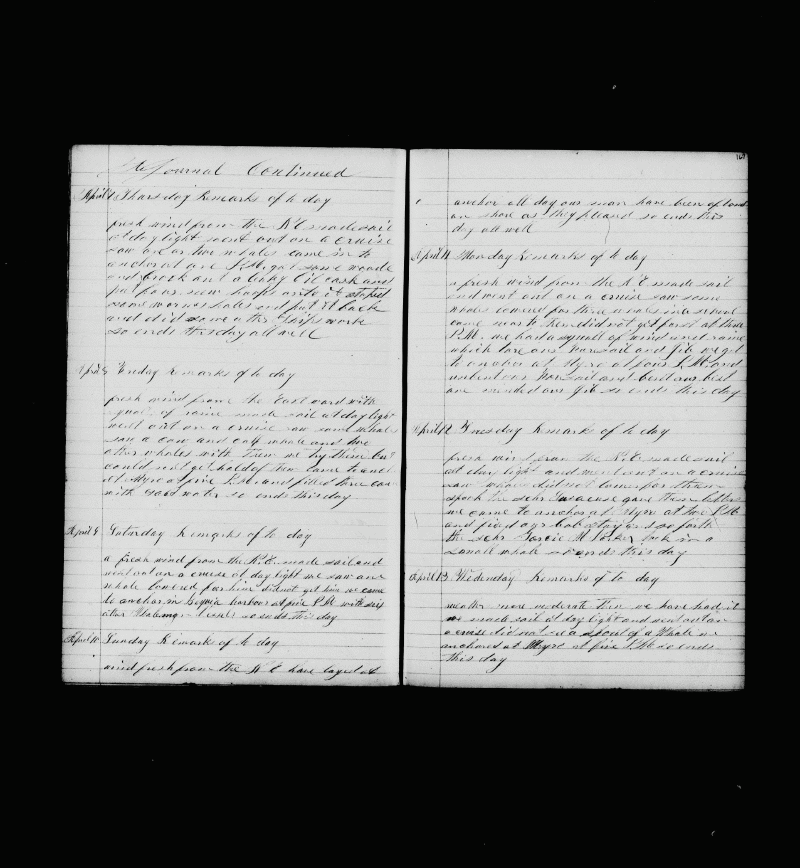 Journal Continued
Thursday Remarks of to day
fresh wind from the N E made sail
at day light went out on a cruise
saw one or two whales came in to
anchor at one P.M. got some
and broak out a Oil cask and
put four new hoops onto it stoped
some worm holes and put it back
and did some other Ships work
so ends this day all well
Friday Remarks of to day
fresh wind from the East ward with
of raine made sail at day light
went out on a cruise saw some whales
saw a cow and calf whale and two
other whales with them we by them but
could not get hold of them came to anch
at five P.M. and filled three
with water so ends this day
April 9 Saturday Remarks of to day
a fresh wind from the N.E. made sail and
went out on a cruise at day light we saw one
whale lowered for him did not get him we came
to anchor in Bequia harbour at five P.M. with six
other Whaleing so ends this day
April 10 Sunday Remarks of to day
wind fresh from the N E have layed at
anchor all day our men have been of board
on shore as they pleased so ends this
day all well
April 11 Monday Remarks of to day
a fresh wind from the N.E. made sail
and went out on a cruise saw some
whales lowered for three whales in a school
come near to them did not get fast at three
P.M. we had a of wind and raine
which tore our foresail and jib we got
to anchor at at four P.M. and
unbent our foresail and bent our best
one mended our jib so ends this day
April 12 Tuesday Remarks of to day
fresh wind from the N.E. made sail
at day light and went out on a cruise
saw whales did not lower for them
spoke the schr gave them letters
we came to anchor at at two P.M.
and fixed our bob stay and so forth
the schr M took in a
small whale so ends this day
April 13 Wedenday Remarks of to day
weather more moderate then we have had it
we made sail at day light and went out on
a cruise did not see a spout of a Whale we
anchored at at five P.M. so ends
this day